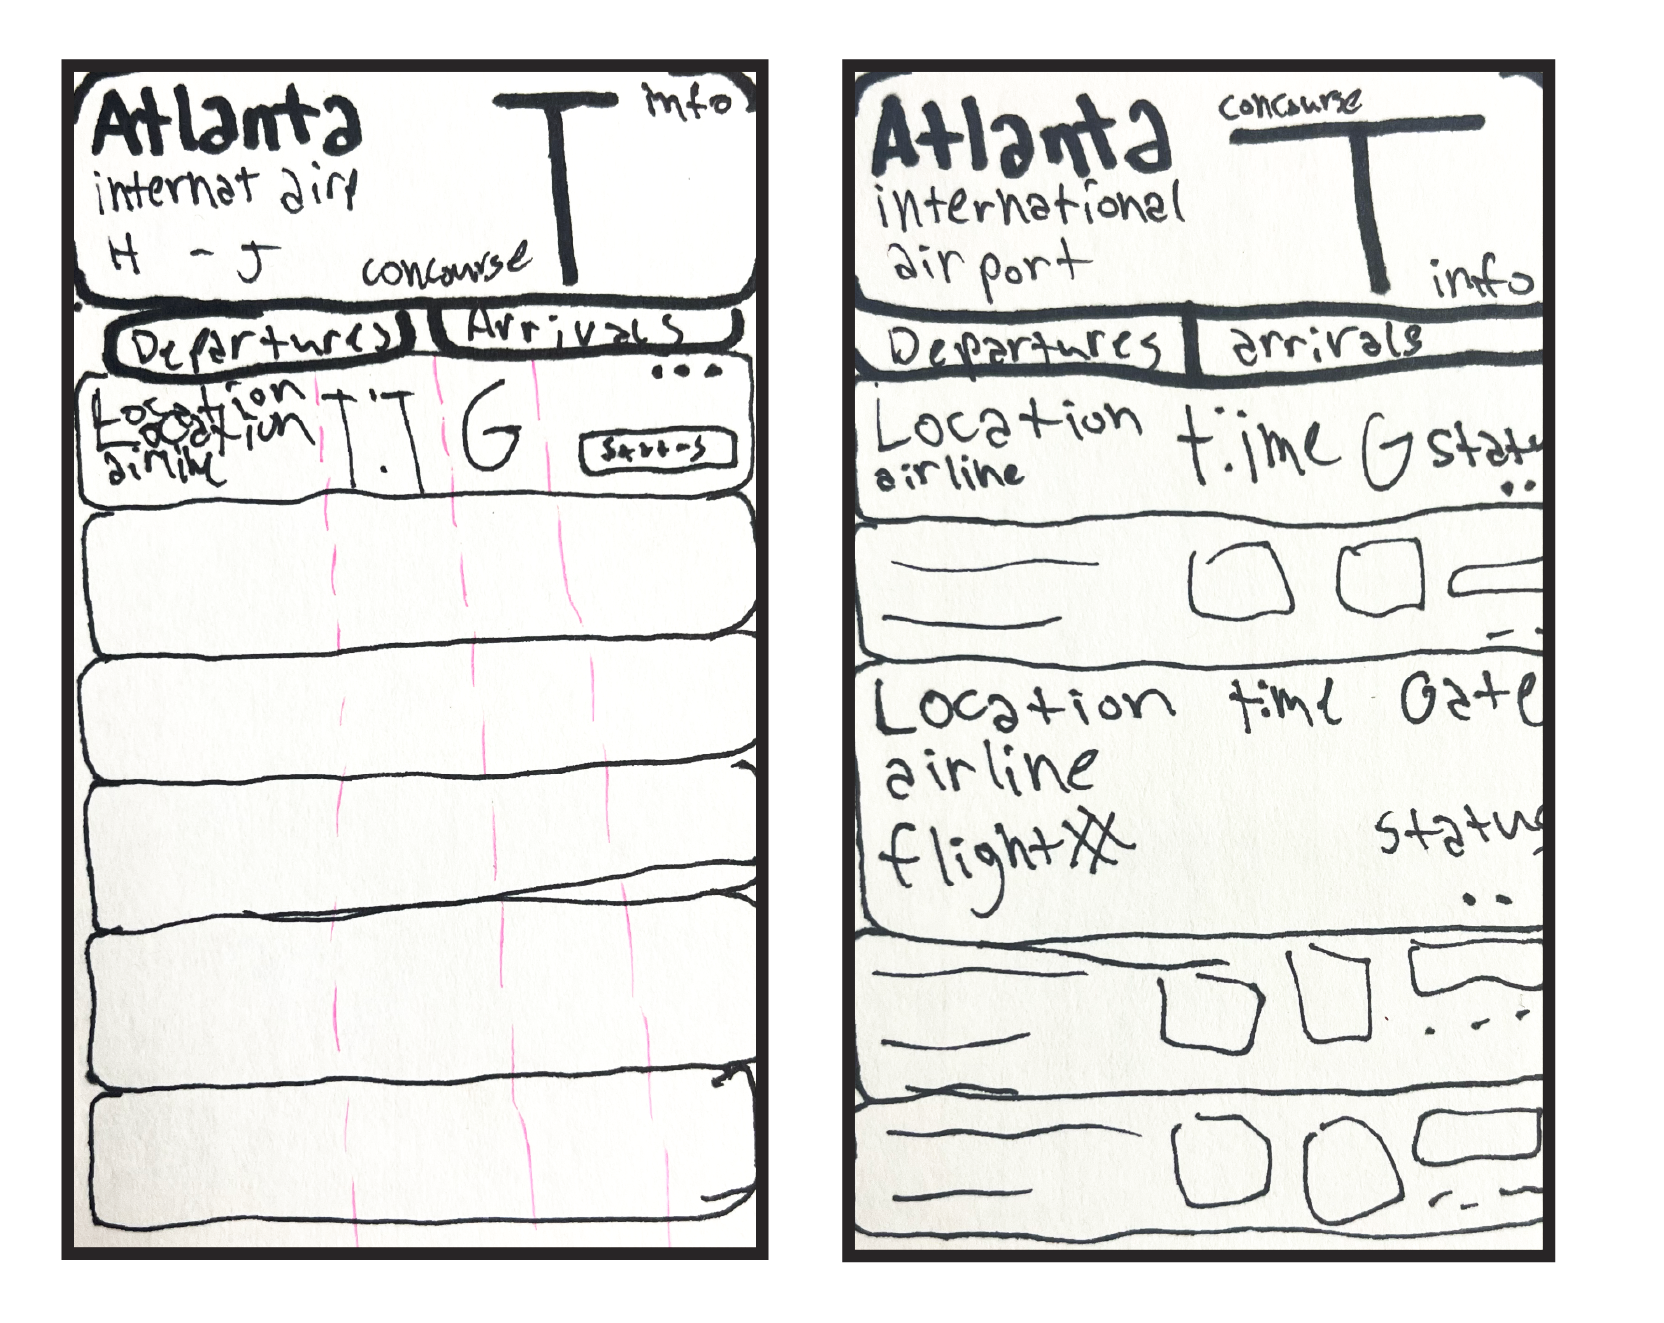 Atlanta
internat airp
H - J
concourse
T
info
Departures
Arrivals
Location
Location
airline
T:T
G
status
Atlanta
international
airport
concourse
T
info
Departures
arrivals
Location
airline
t:ime
G
statu
Location
airline
flight#
time
Gate
status